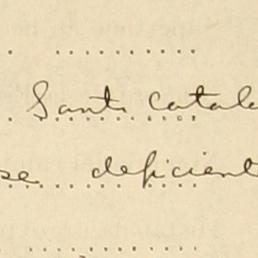 Santa Catal
se deficient